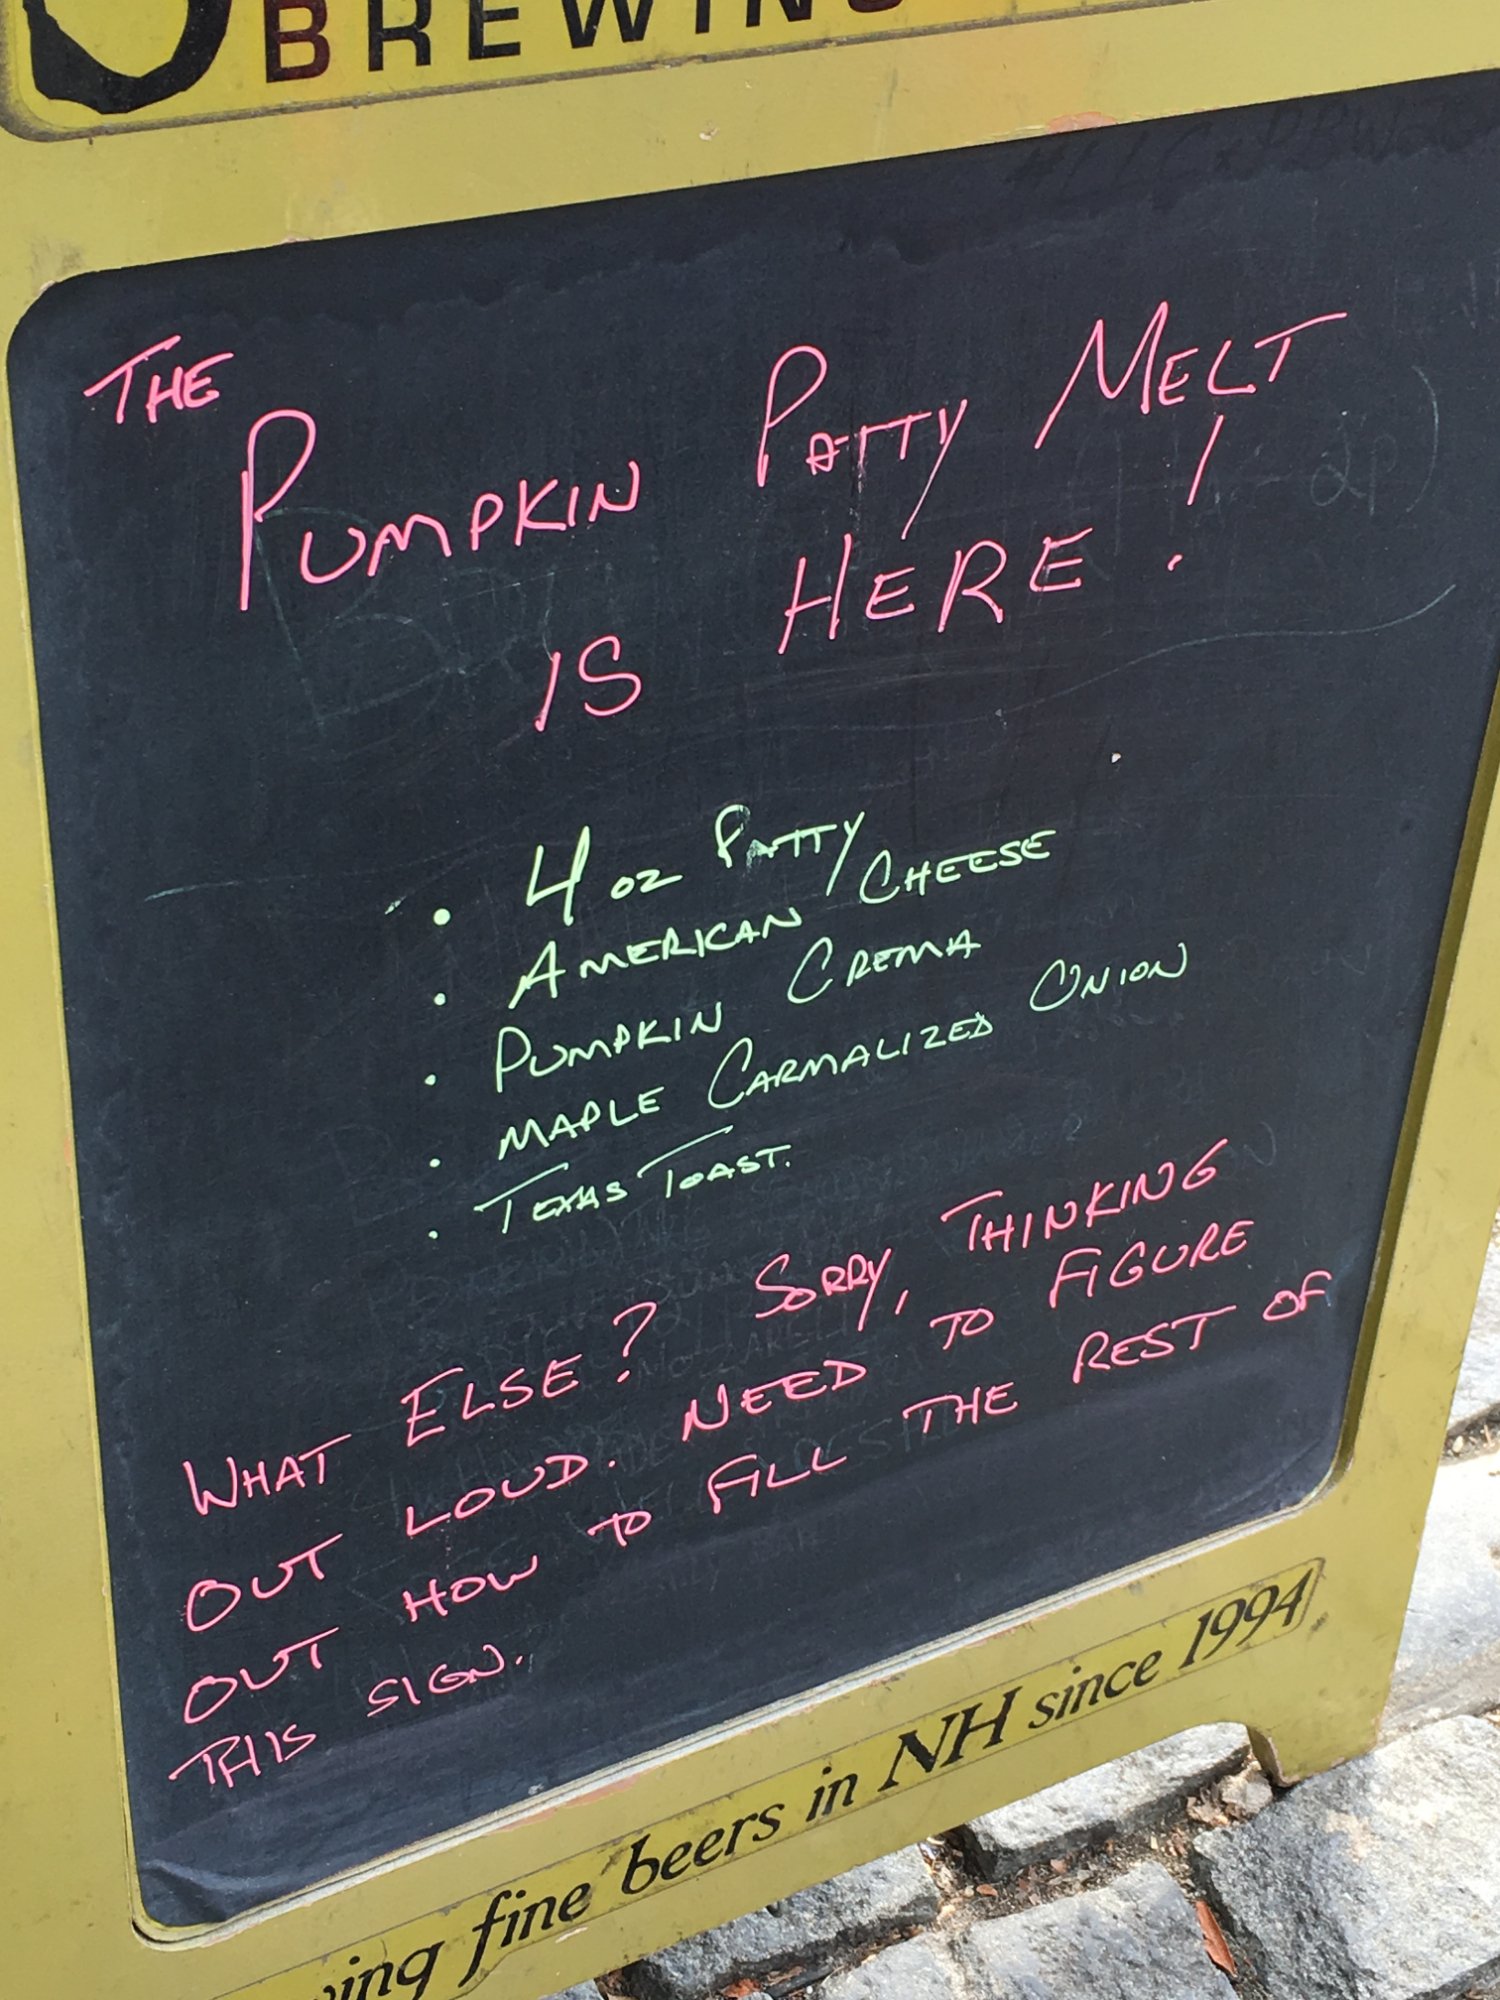 BREWING
THE
PUMPKIN PATTY MELT
IS HERE!
• 4 OZ PATTY
• AMERICAN CHEESE
• PUMPKIN CREMA
• MAPLE CARMALIZED ONION
• TEXAS TOAST.
WHAT ELSE? SORRY, THINKING
OUT LOUD. NEED TO FIGURE
OUT HOW TO FILL THE REST OF
THIS SIGN.
fine beers in NH since 1994